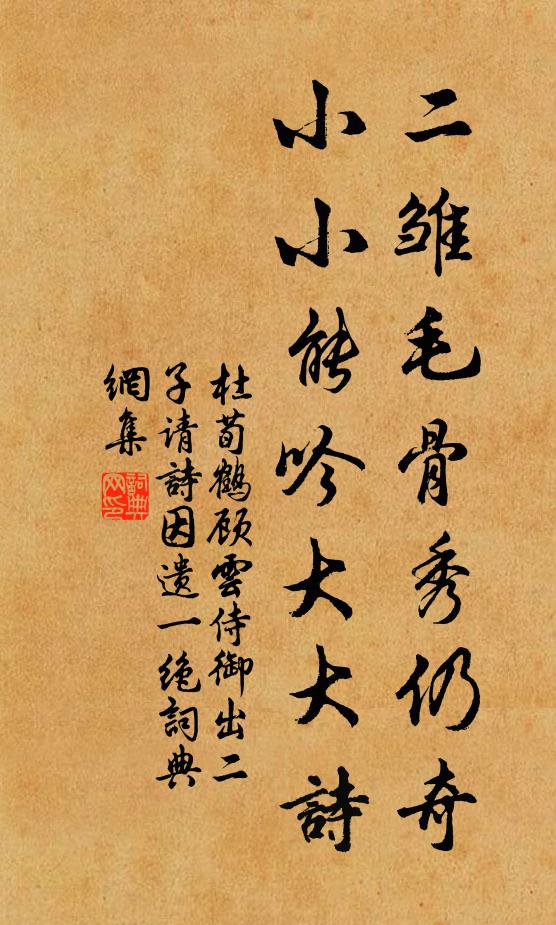 二雏毛骨秀仍奇
小小能吟大大詩
杜荀鶴顾雲侍御出二
子请詩因遗一绝詞典
網集
詞典
网印